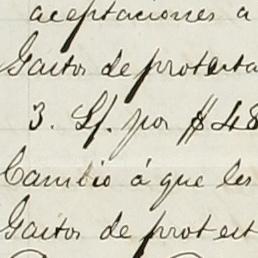 aceptaciones a
Gastos de protesta
3. L/. por $48
Cambio á que les
Gastos de protest